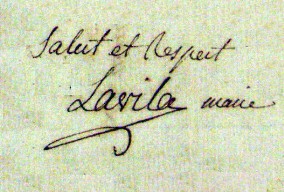 Salut et Respect
Lavila maire